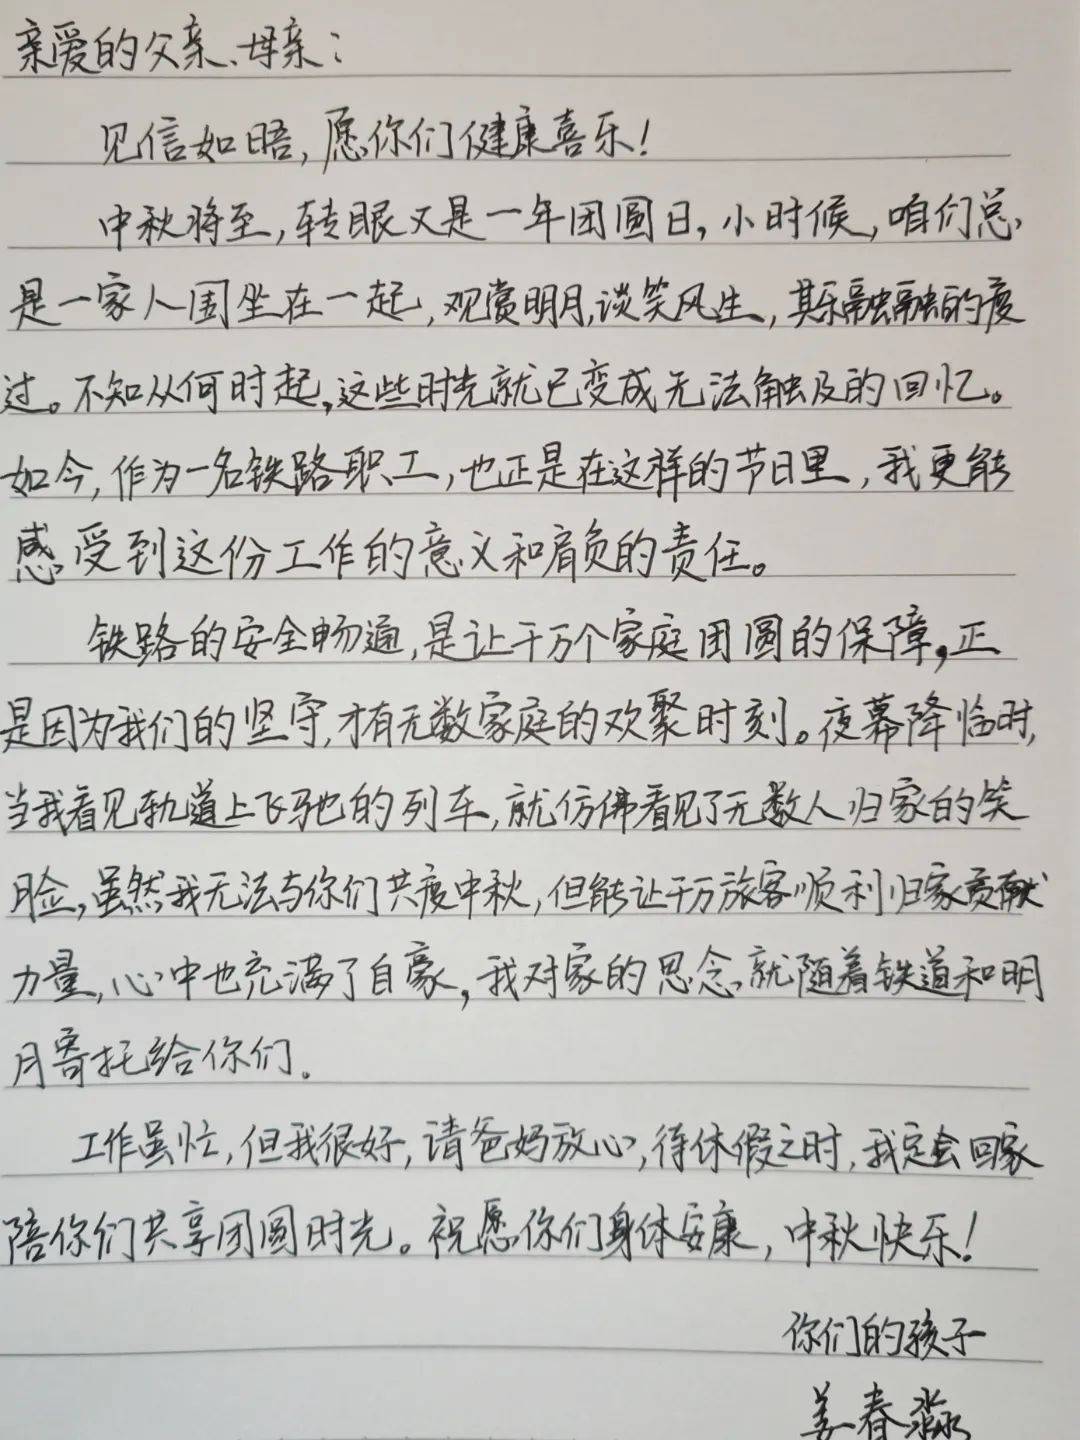 亲爱的父亲、母亲：
见信如晤，愿你们健康喜乐！
中秋将至，转眼又是一年团圆日，小时候，咱们总
是一家人围坐在一起，观赏明月，谈笑风生，其乐融融的度
过。不知从何时起，这些时光就已变成无法触及的回忆。
如今，作为一名铁路职工，也正是在这样的节日里，我更能
感受到这份工作的意义和肩负的责任。
铁路的安全畅通，是让千万个家庭团圆的保障，正
是因为我们的坚守，才有无数家庭的欢聚时刻。夜幕降临时，
当我看见轨道上飞驰的列车，就仿佛看见了无数人归家的笑
脸，虽然我无法与你们共度中秋，但能让千万旅客顺利归家贡献
力量，心中也充满了自豪，我对家的思念，就随着铁道和明
月寄托给你们。
工作虽忙，但我很好，请爸妈放心，待休假之时，我定会回家
陪你们共享团圆时光。祝愿你们身体安康，中秋快乐！
你们的孩子
姜春淼